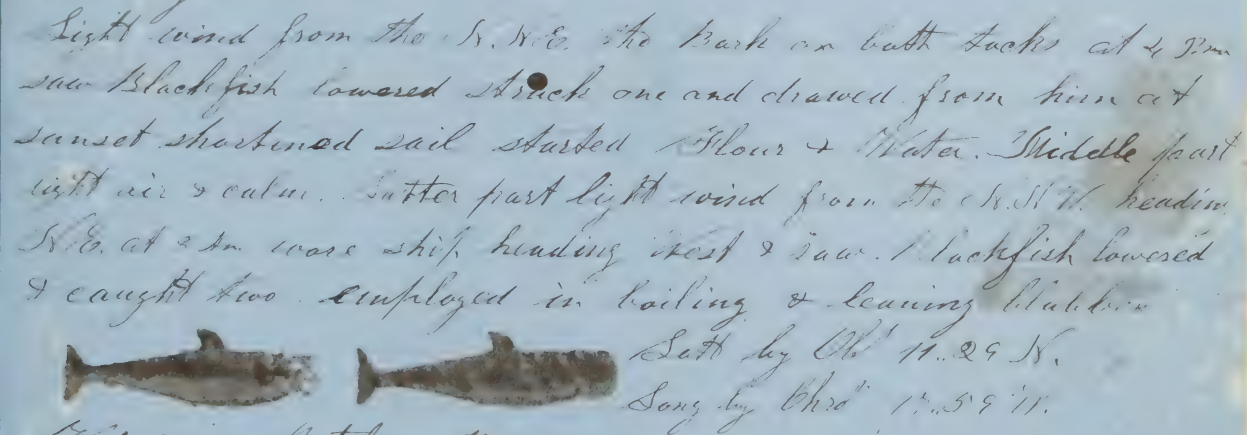 Light wind from the N.N.E. the Bark on both tacks at 4 Pm
saw Blackfish lowered struck one and drawed from him at
sunset shortined sail started Flour & Water. Middle part
light air & calm. Latter part light wind from the N.N.W. heading
N.E. at Am wore ship heading West & saw Blackfish lowered
& caught two employed in boiling & leaning blubber
Latt by Ob 11..29 N.
Long by Chro